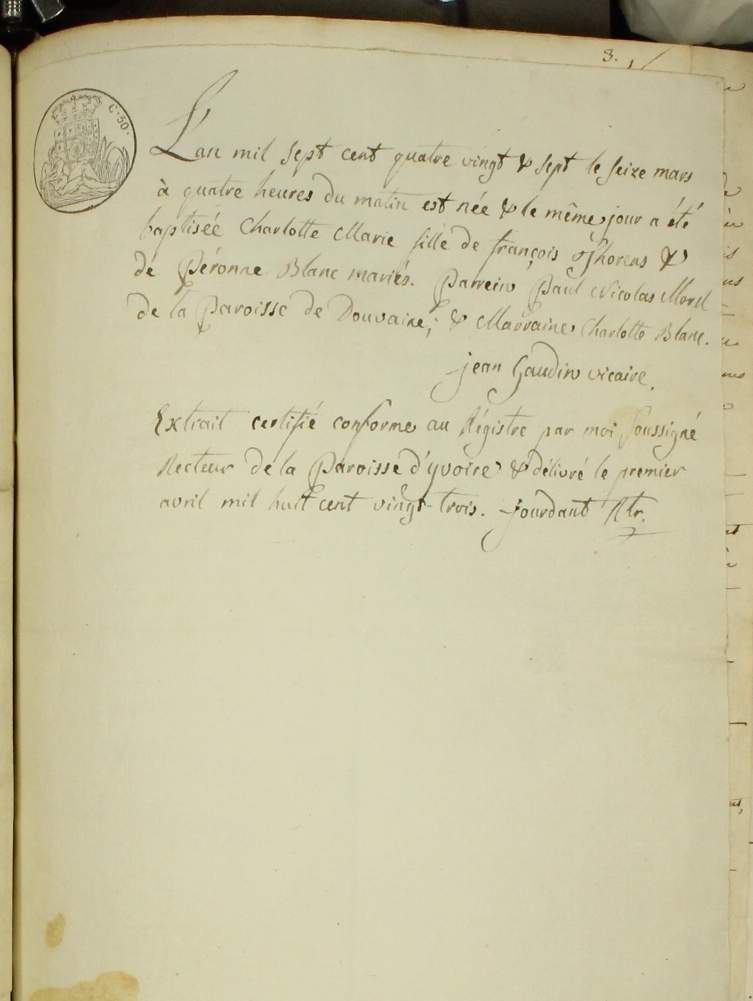 3.
C. 50.
L'an mil sept cent quatre vingt & sept le seize mars
à quatre heures du matin est née & le même jour a été
baptisée Charlotte Marie fille de françois &
de Péronne Blanc mariés. Parrein Paul Nicolas Morel
de la Paroisse de Douvaine; & Marraine Charlotte Blanc.
jean Gaudin vicaire.
Extrait certifié conforme au Régistre par moi soussigné
Recteur de la Paroisse d'yvoire & délivré le premier
avril mil huit cent vingt-trois. jourdant Rtr.